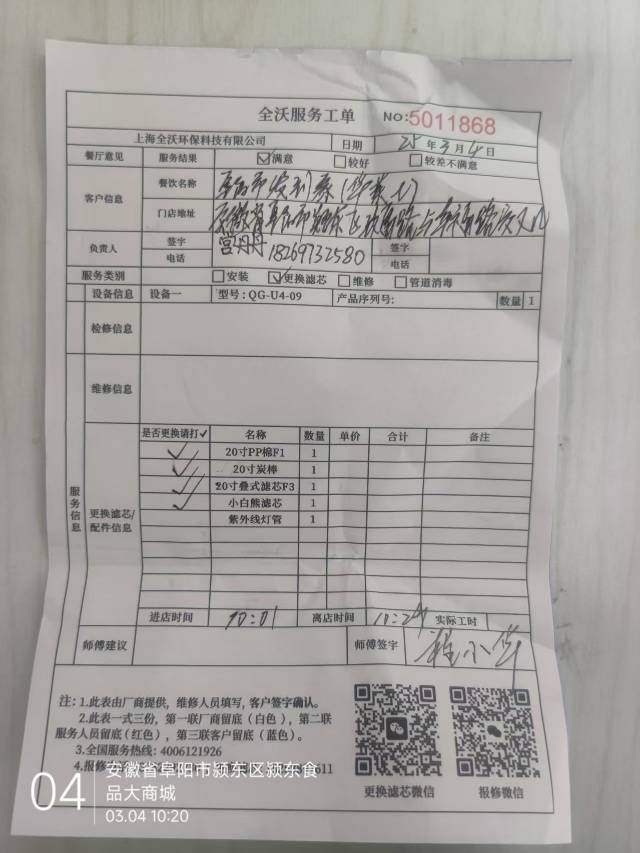 全沃服务工单 NO:5011868
上海全沃环保科技有限公司 日期 25年3月4日
餐厅意见 服务结果 ☑满意 □较好 □较差不满意
客户信息 餐饮名称
门店地址 安徽省阜阳市
负责人 签字 宫丹丹 签字
电话 18269732580 电话
服务类别 □安装 ☑更换滤芯 □维修 □管道消毒
设备信息 设备一 型号: QG-U4-09 产品序列号: 数量 1
检修信息
维修信息
服务信息
更换滤芯/配件信息
是否更换请打✓ 名称 数量 单价 合计 备注
✓ 20寸PP棉F1 1
✓ 20寸炭棒 1
✓ 20寸叠式滤芯F3 1
✓ 小白熊滤芯 1
紫外线灯管 1
进店时间 10:01 离店时间 10:24 实际工时
师傅建议 师傅签字
注: 1.此表由厂商提供, 维修人员填写, 客户签字确认。
2.此表一式三份, 第一联厂商留底 (白色), 第二联
服务人员留底(红色), 第三联客户留底 (蓝色)。
3.全国服务热线: 4006121926
4.报修 611
更换滤芯微信 报修微信
04 安徽省阜阳市颍东区颍东食
品大商城
03.04 10:20